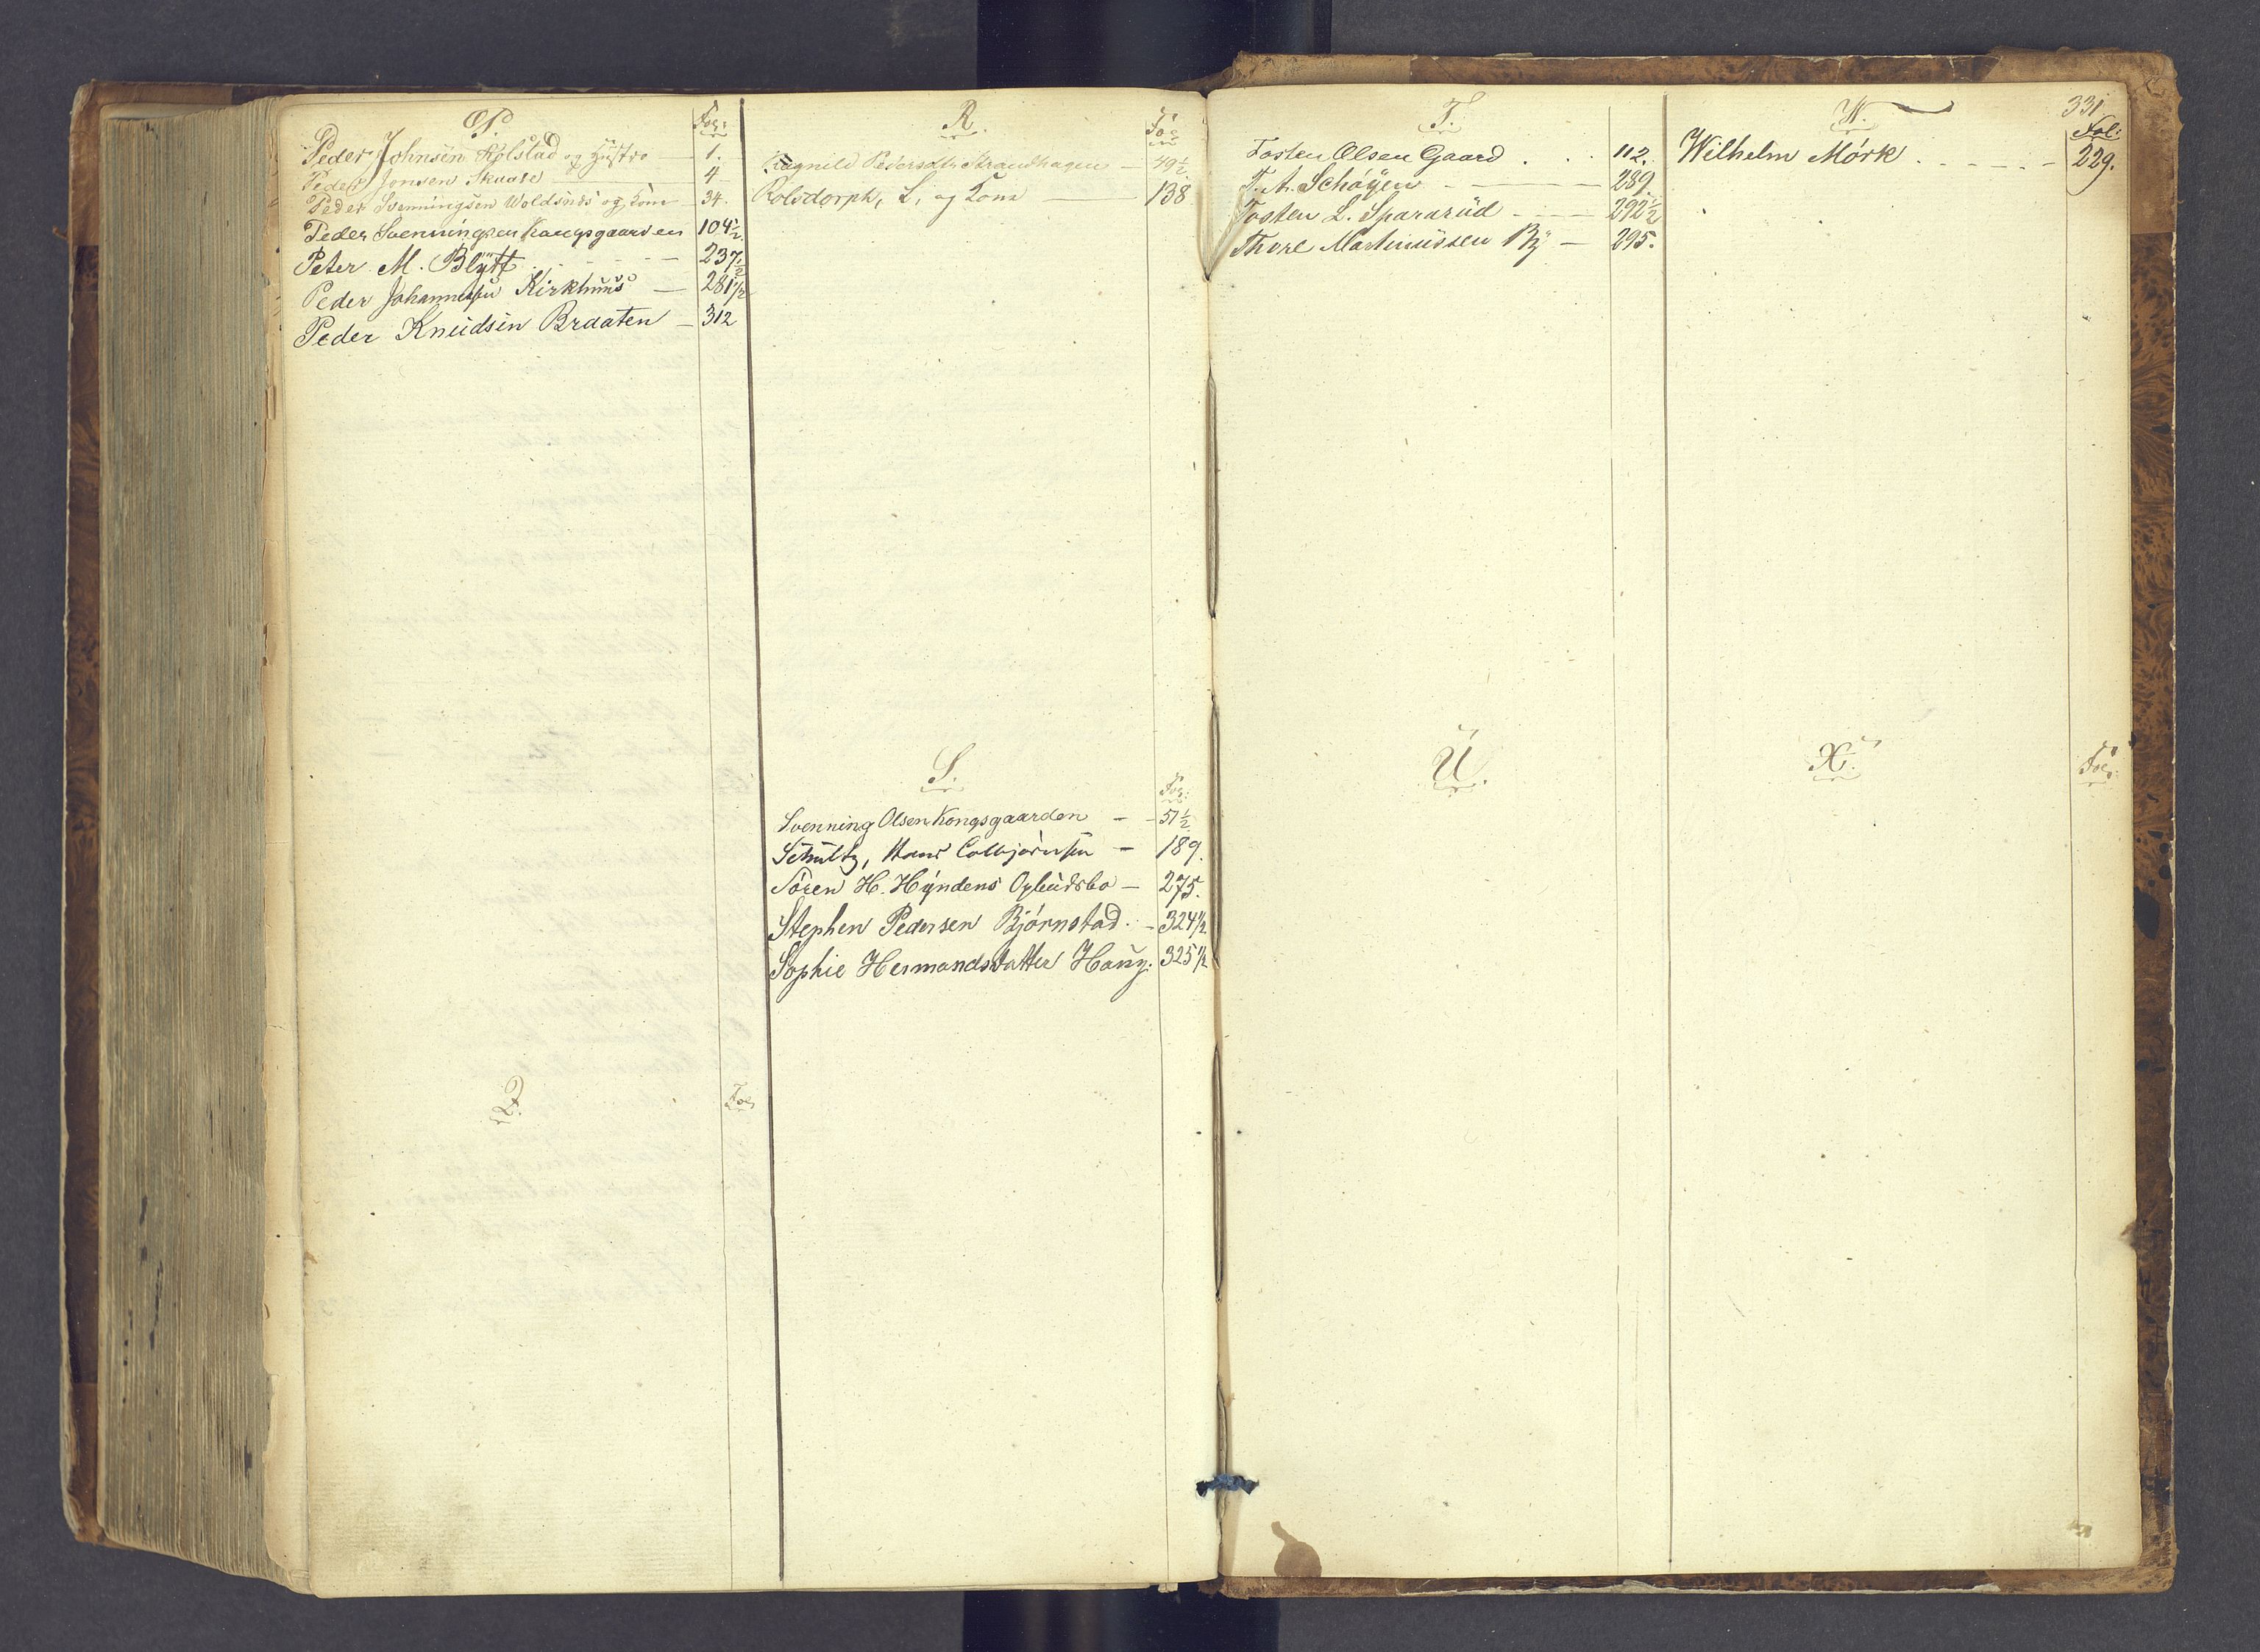 P.
Fol:
Peder Johnsen Kolstad og Hustro — 1.
Peder Jonsen Skaare — 4
Peder Svenningsen Woldsnes og Kone — 34.
Peder Svenningsen Kongsgaarden 104½
Peter M. Blÿtt — 237½
Peder Johannesen Kirkhuus — 281½
Peder Knudsen Braaten — 312
Q.
Fol
R.
Fol
Ragnild Pedersdtr Strandhagen — 49½
Rolsdorph, L. og Kone — 138
S.
Fol:
Svenning Olsen Kongsgaarden — 51½
Schultz, Hans Colbjørnsen — 189.
Søren H. Hÿndens Opbudsbo — 275.
Stephen Pedersen Bjørnstad. — 324½
Sophie Hermandsdatter Haug. 325½
T.
Tosten Olsen Gaard . . . 112.
T. A. Schøÿen — 289.
Tosten L. Spararud — 292½
Thore Martinussen Bÿ — 295.
U.
331
W.
Fol:
Wilhelm Mørk . — 229.
X.
Fol: